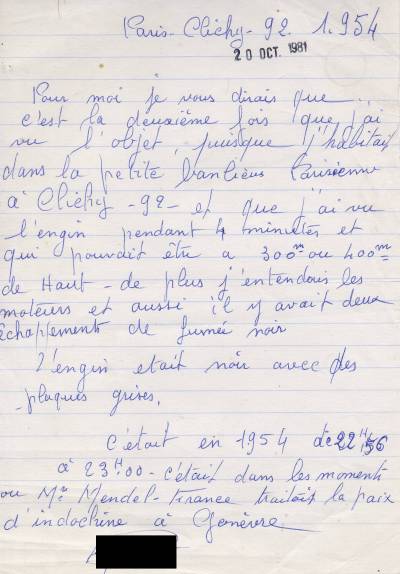 Paris-Clichy-92. 1.954
20 OCT. 1981
Pour moi je vous dirais que...
c'est la deuxième fois que j'ai
vu l'objet, puisque j'habitais
dans la petite banlieue Parisienne
à Clichy -92- et que j'ai vu
l'engin pendant 4 minutes et
qui pouvait être a 300m ou 400m
de Haut - de plus j'entendais les
moteurs et aussi il y avait deux
échapements de fumée noir
L'engin etait noir avec des
plaques grises.
C'était en 1954 de 22H56
à 23H00 - c'était dans les moments
ou Mr Mendel-France traitait la paix
d'indochine à Genèvre